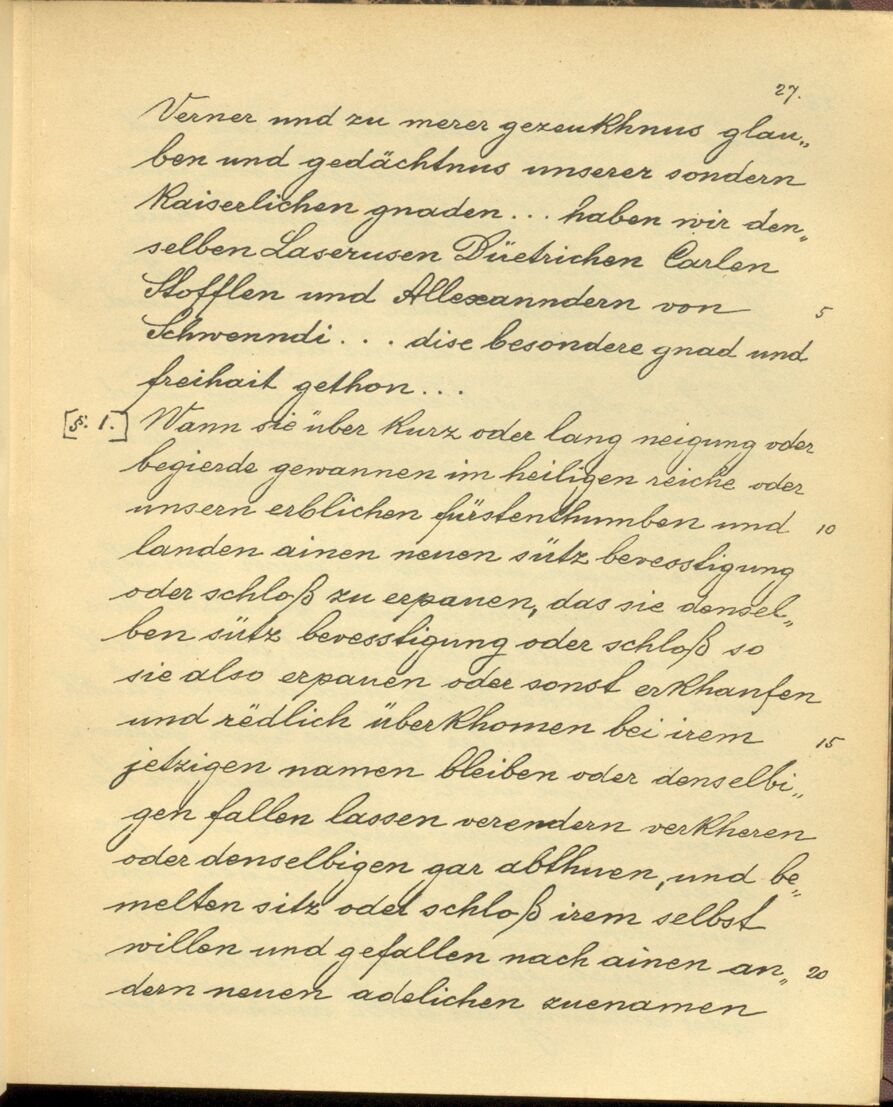 27.
Verner und zu merer gezeukhnus glau„
ben und gedächtnus unserer sondern
Kaiserlichen gnaden... haben wir den„
selben Laserusen Düetrichen Carlen
Stofflen und Allexanndern von 5
Schwenndi... dise besondere gnad und
freihait gethon...
[§. 1.] Wann sie über kurz oder lang neigung oder
begierde gewannen im heiligen reiche oder
unsern erblichen fürstenthumben und 10
landen ainen neuen sütz bevesstigung
oder schloß zu erpauen, das sie densel„
ben sütz bevesstigung oder schloß so
sie also erpauen oder sonst erkhaufen
und rëdlich überkhomen bei irem 15
jetzigen namen bleiben oder denselbi„
gen fallen lassen verendern verkheren
oder denselbigen gar abthuen, und be„
melten sitz oder schloß irem selbst
willen und gefallen nach ainen an„ 20
dern neuen adelichen zuenamen